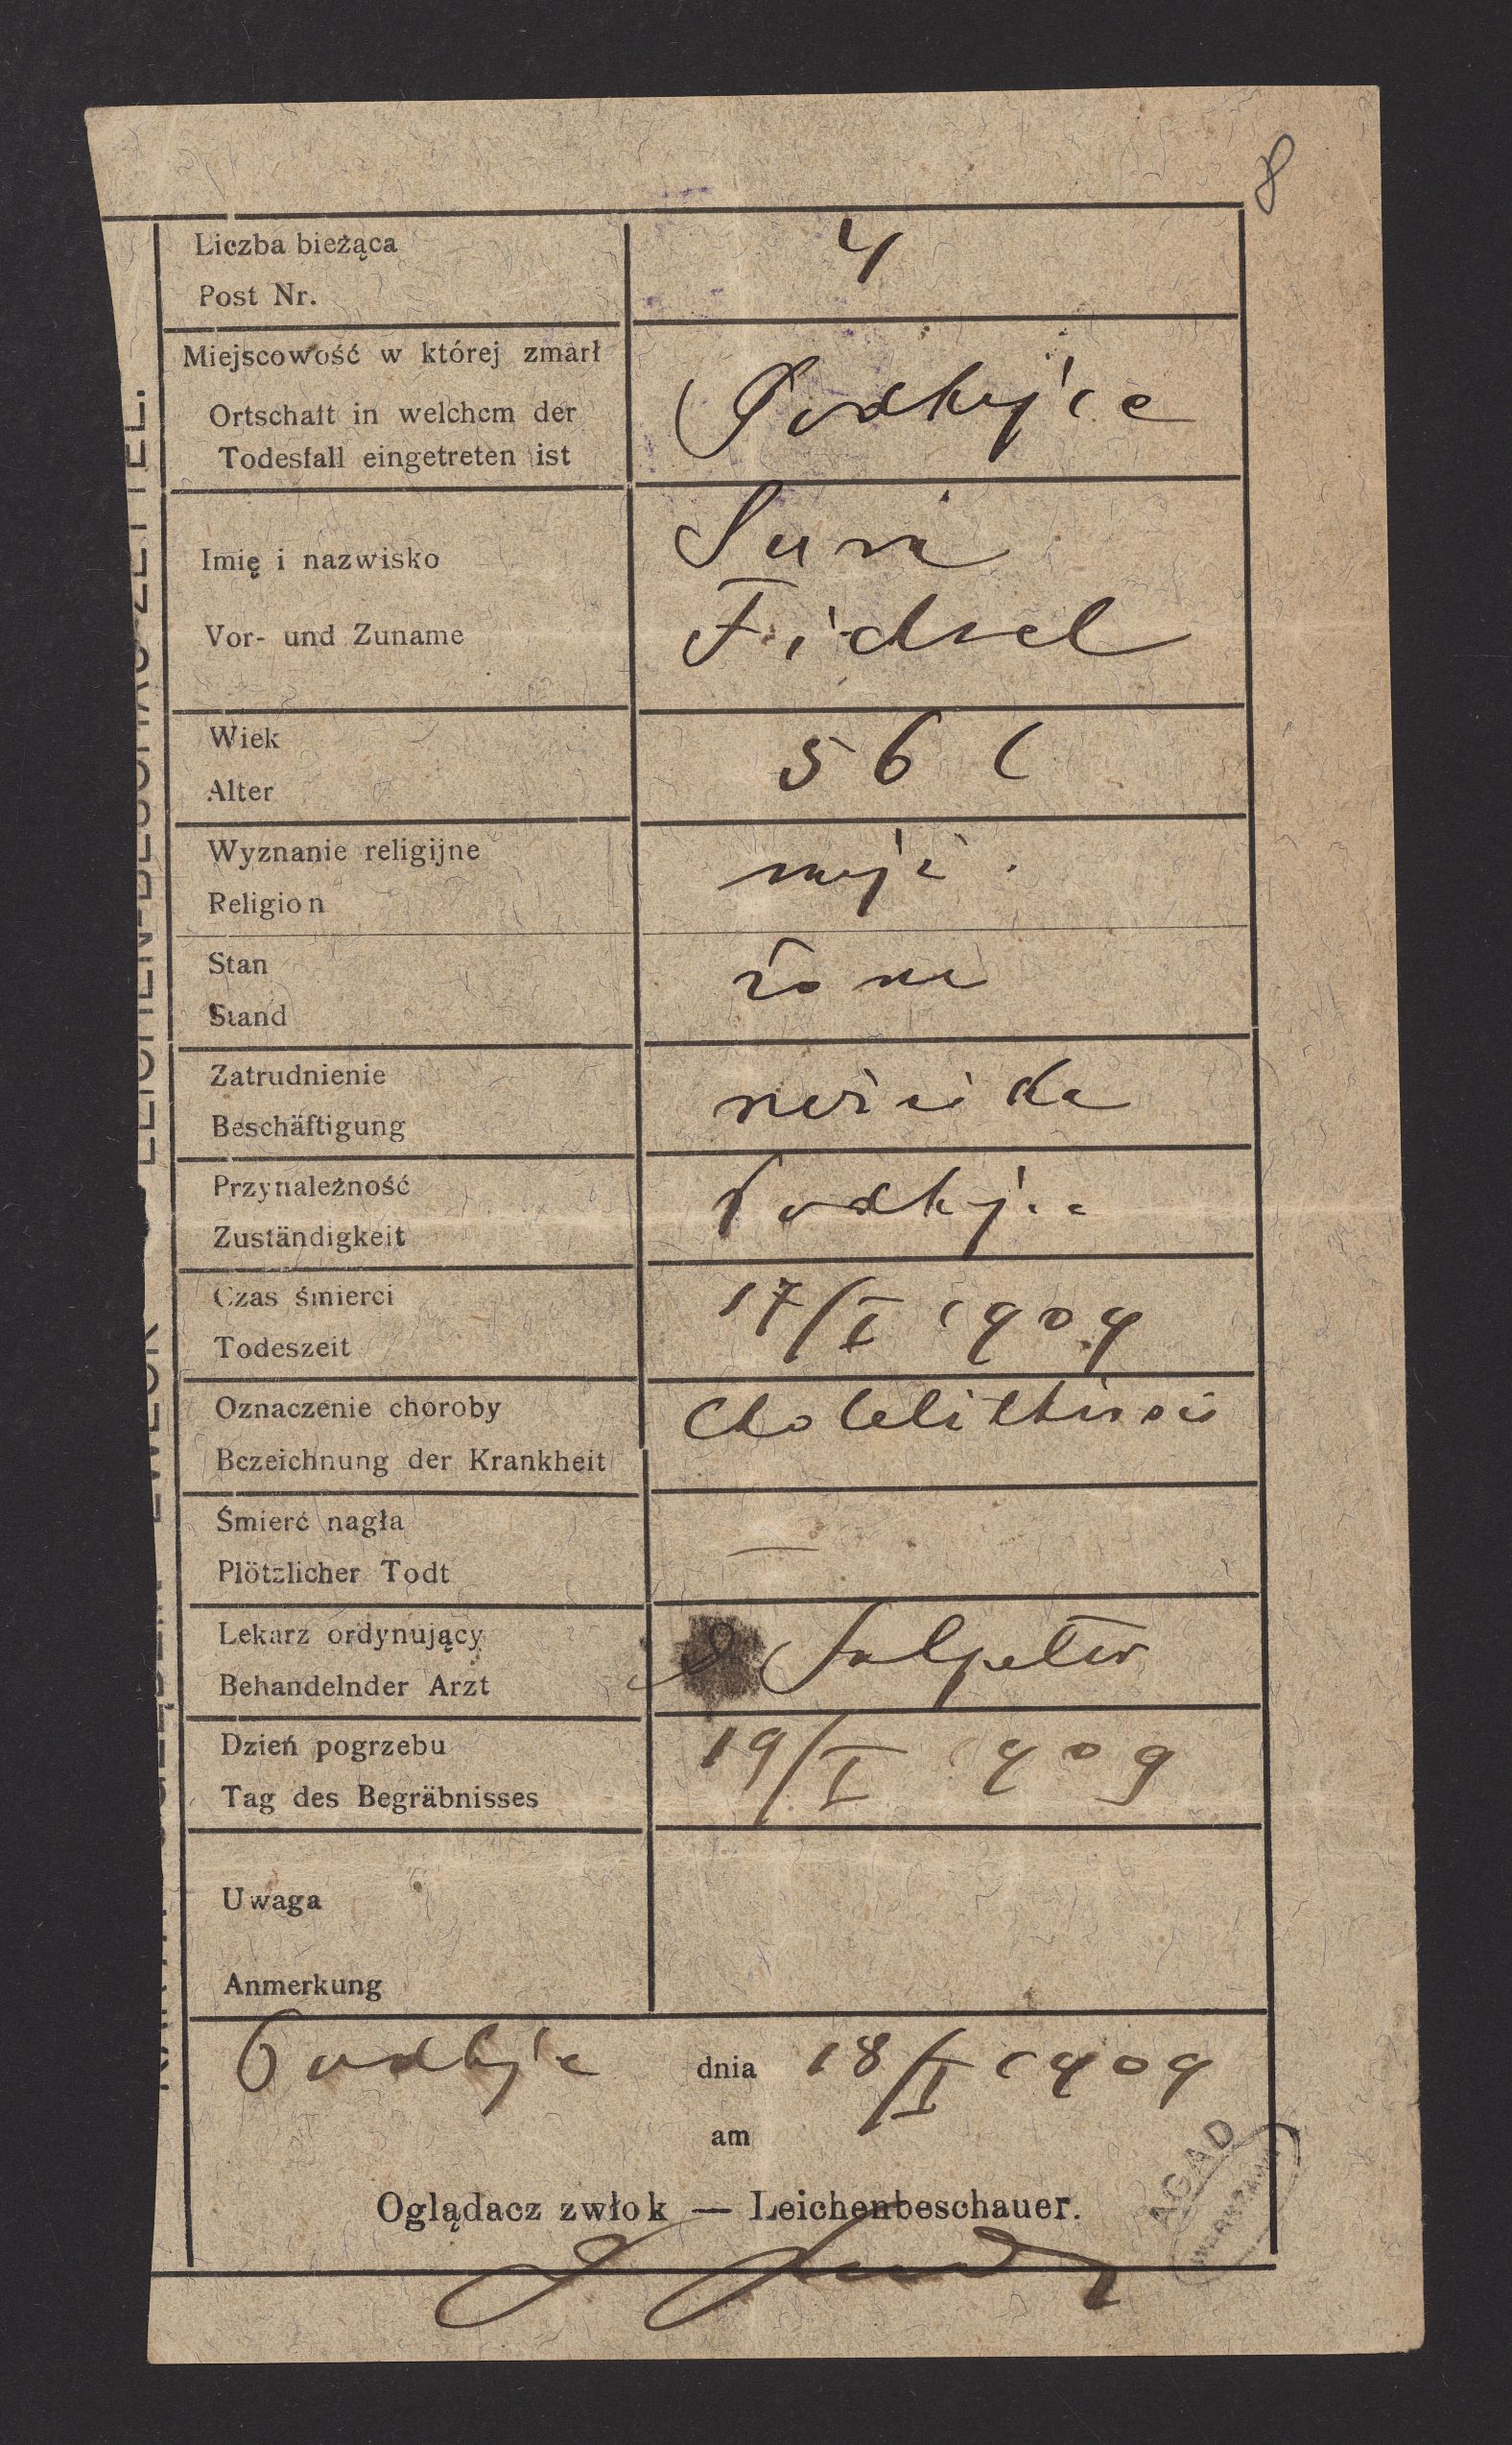 8
Liczba bieżąca
Post Nr.
4
Miejscowość w której zmarł
Ortschaft in welchem der
Todesfall eingetreten ist
Podhajce
Imię i nazwisko
Vor- und Zuname
Sura
Wiek
Alter
56 l
Wyznanie religijne
Religion
mojż.
Stan
Stand
żona
Zatrudnienie
Beschäftigung
Przynależność
Zuständigkeit
Podhajce
Czas śmierci
Todeszeit
17/I 1909
Oznaczenie choroby
Bezeichnung der Krankheit
Cholelithiasis
Śmierć nagła
Plötzlicher Todt
—
Lekarz ordynujący
Behandelnder Arzt
Salpeter
Dzień pogrzebu
Tag des Begräbnisses
19/I 1909
Uwaga
Anmerkung
Podhajce dnia 18/I 1909
am
Oglądacz zwłok — Leichenbeschauer.
AGAD
WARSZAWA